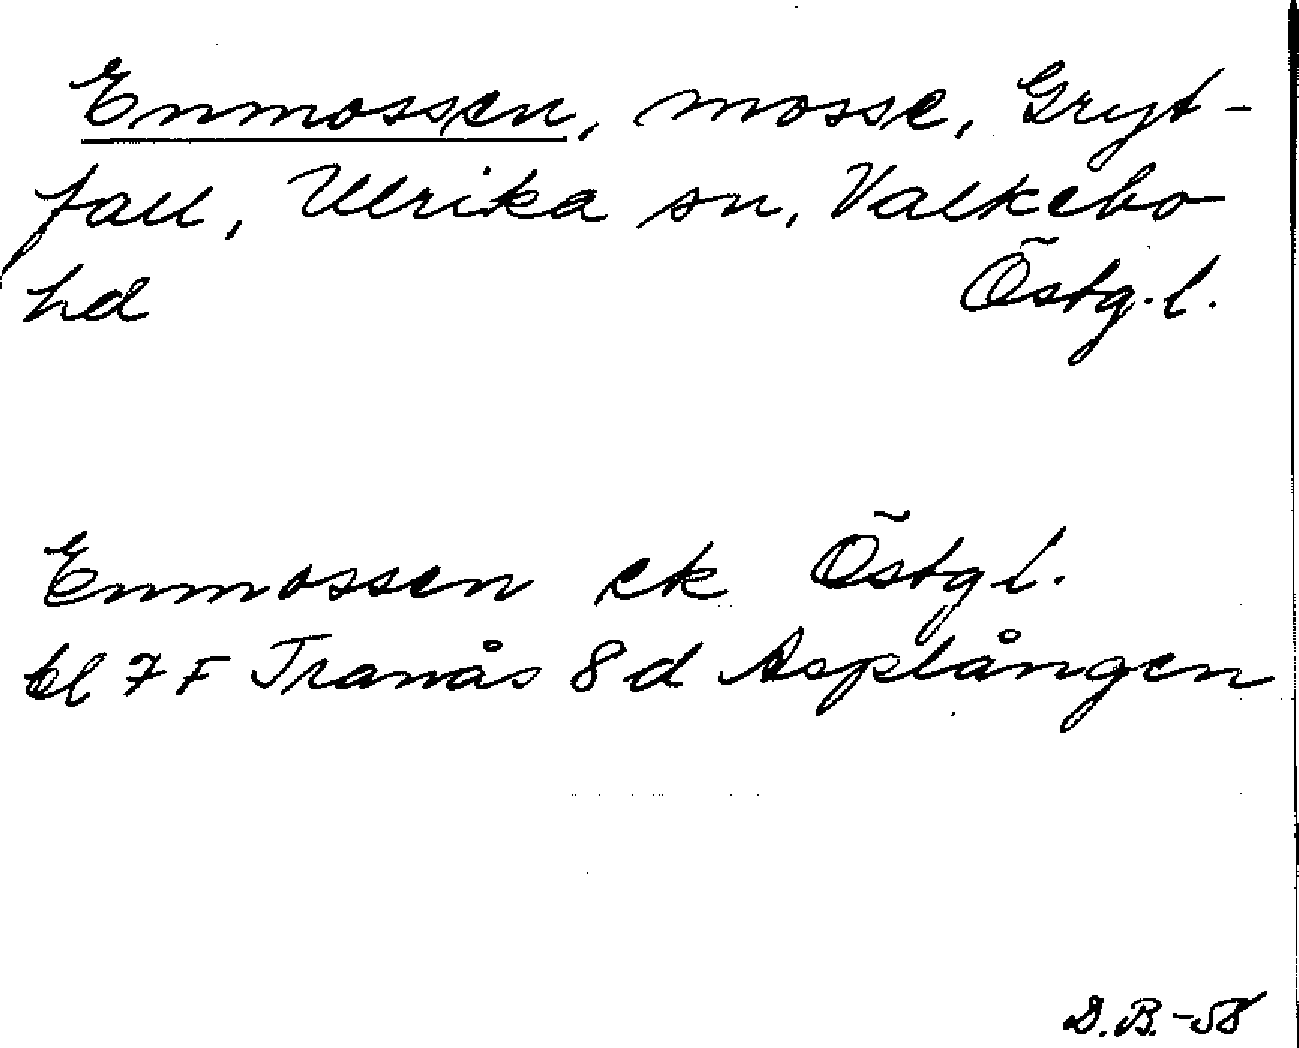 Enmossen, mosse, Gryt-
fall, Ulrika sn, Valkebo
hd Östg. l.
Enmossen ek Östg l.
bl 7 F Tranås 8 d Asplången
D.B.-58